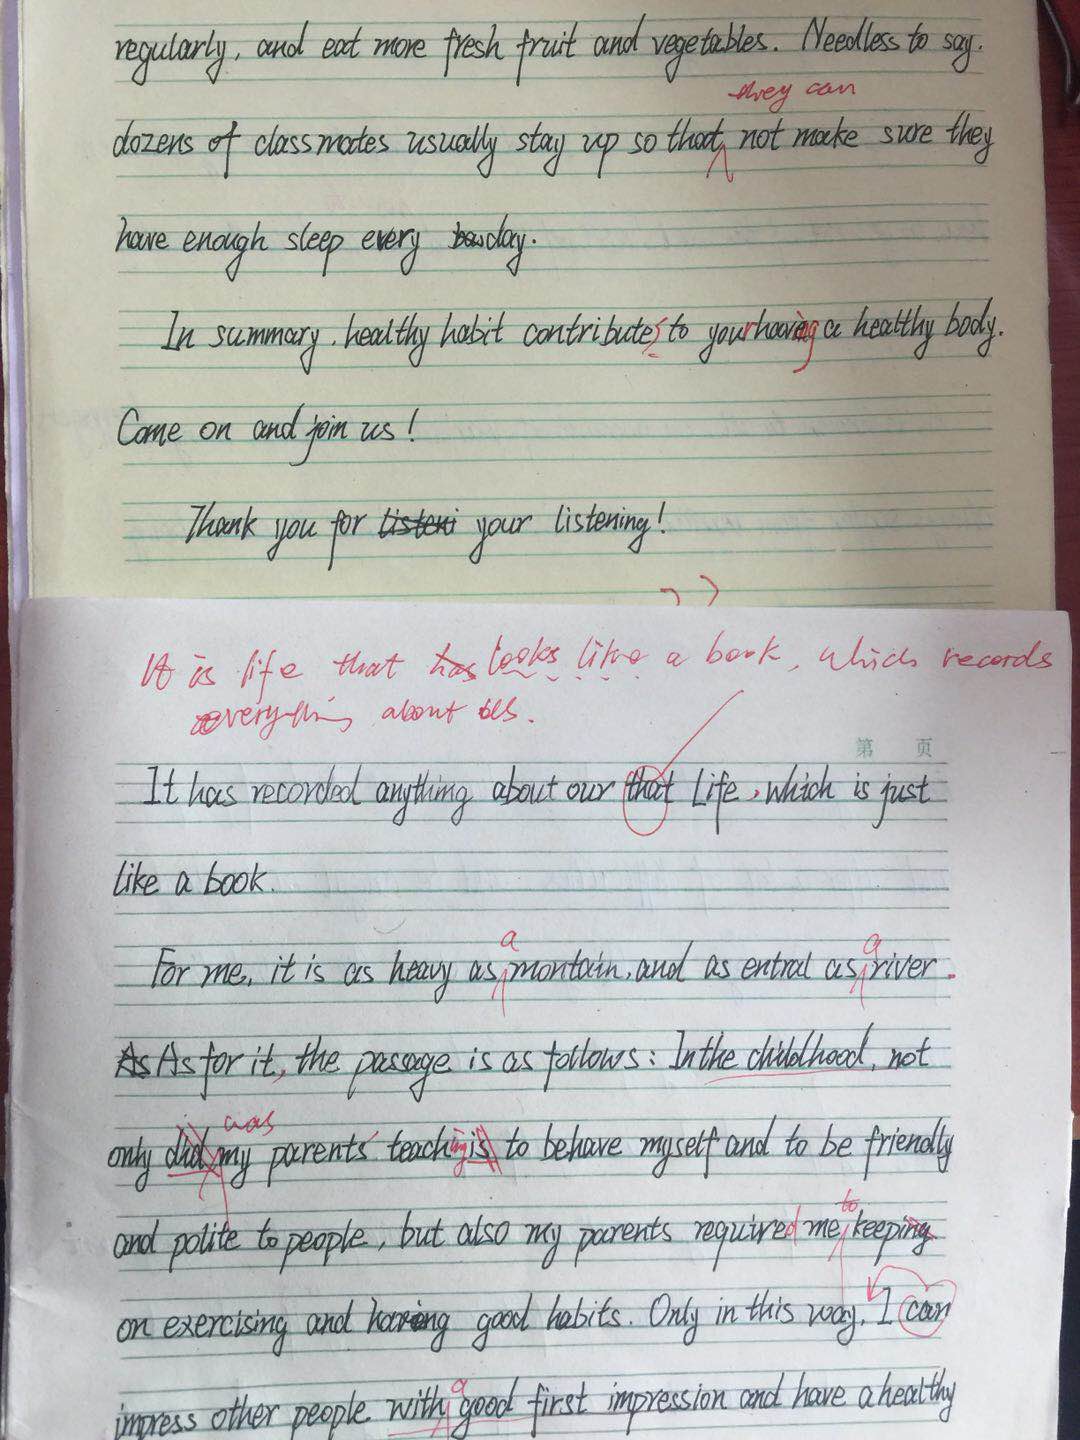 regularly, and eat more fresh fruit and vegetables. Needless to say.
they can
dozens of classmates usually stay up so that not make sure they
have enough sleep every day.
In summary, healthy habit contributes to your having a healthy body.
Come on and join us!
Thank you for listeni your listening!
It is life that has looks like a book, which records
everything about us.
第 页
It has recorded anything about our that Life, which is just
like a book.
a a
For me, it is as heavy as montain, and as entral as river.
As As for it, the passage is as follows: In the childhood, not
was
only did my parents' teaching is to behave myself and to be friendly
to
and polite to people, but also my parents required me keeping
on exercising and having good habits. Only in this way, I can
a
impress other people with good first impression and have a healthy